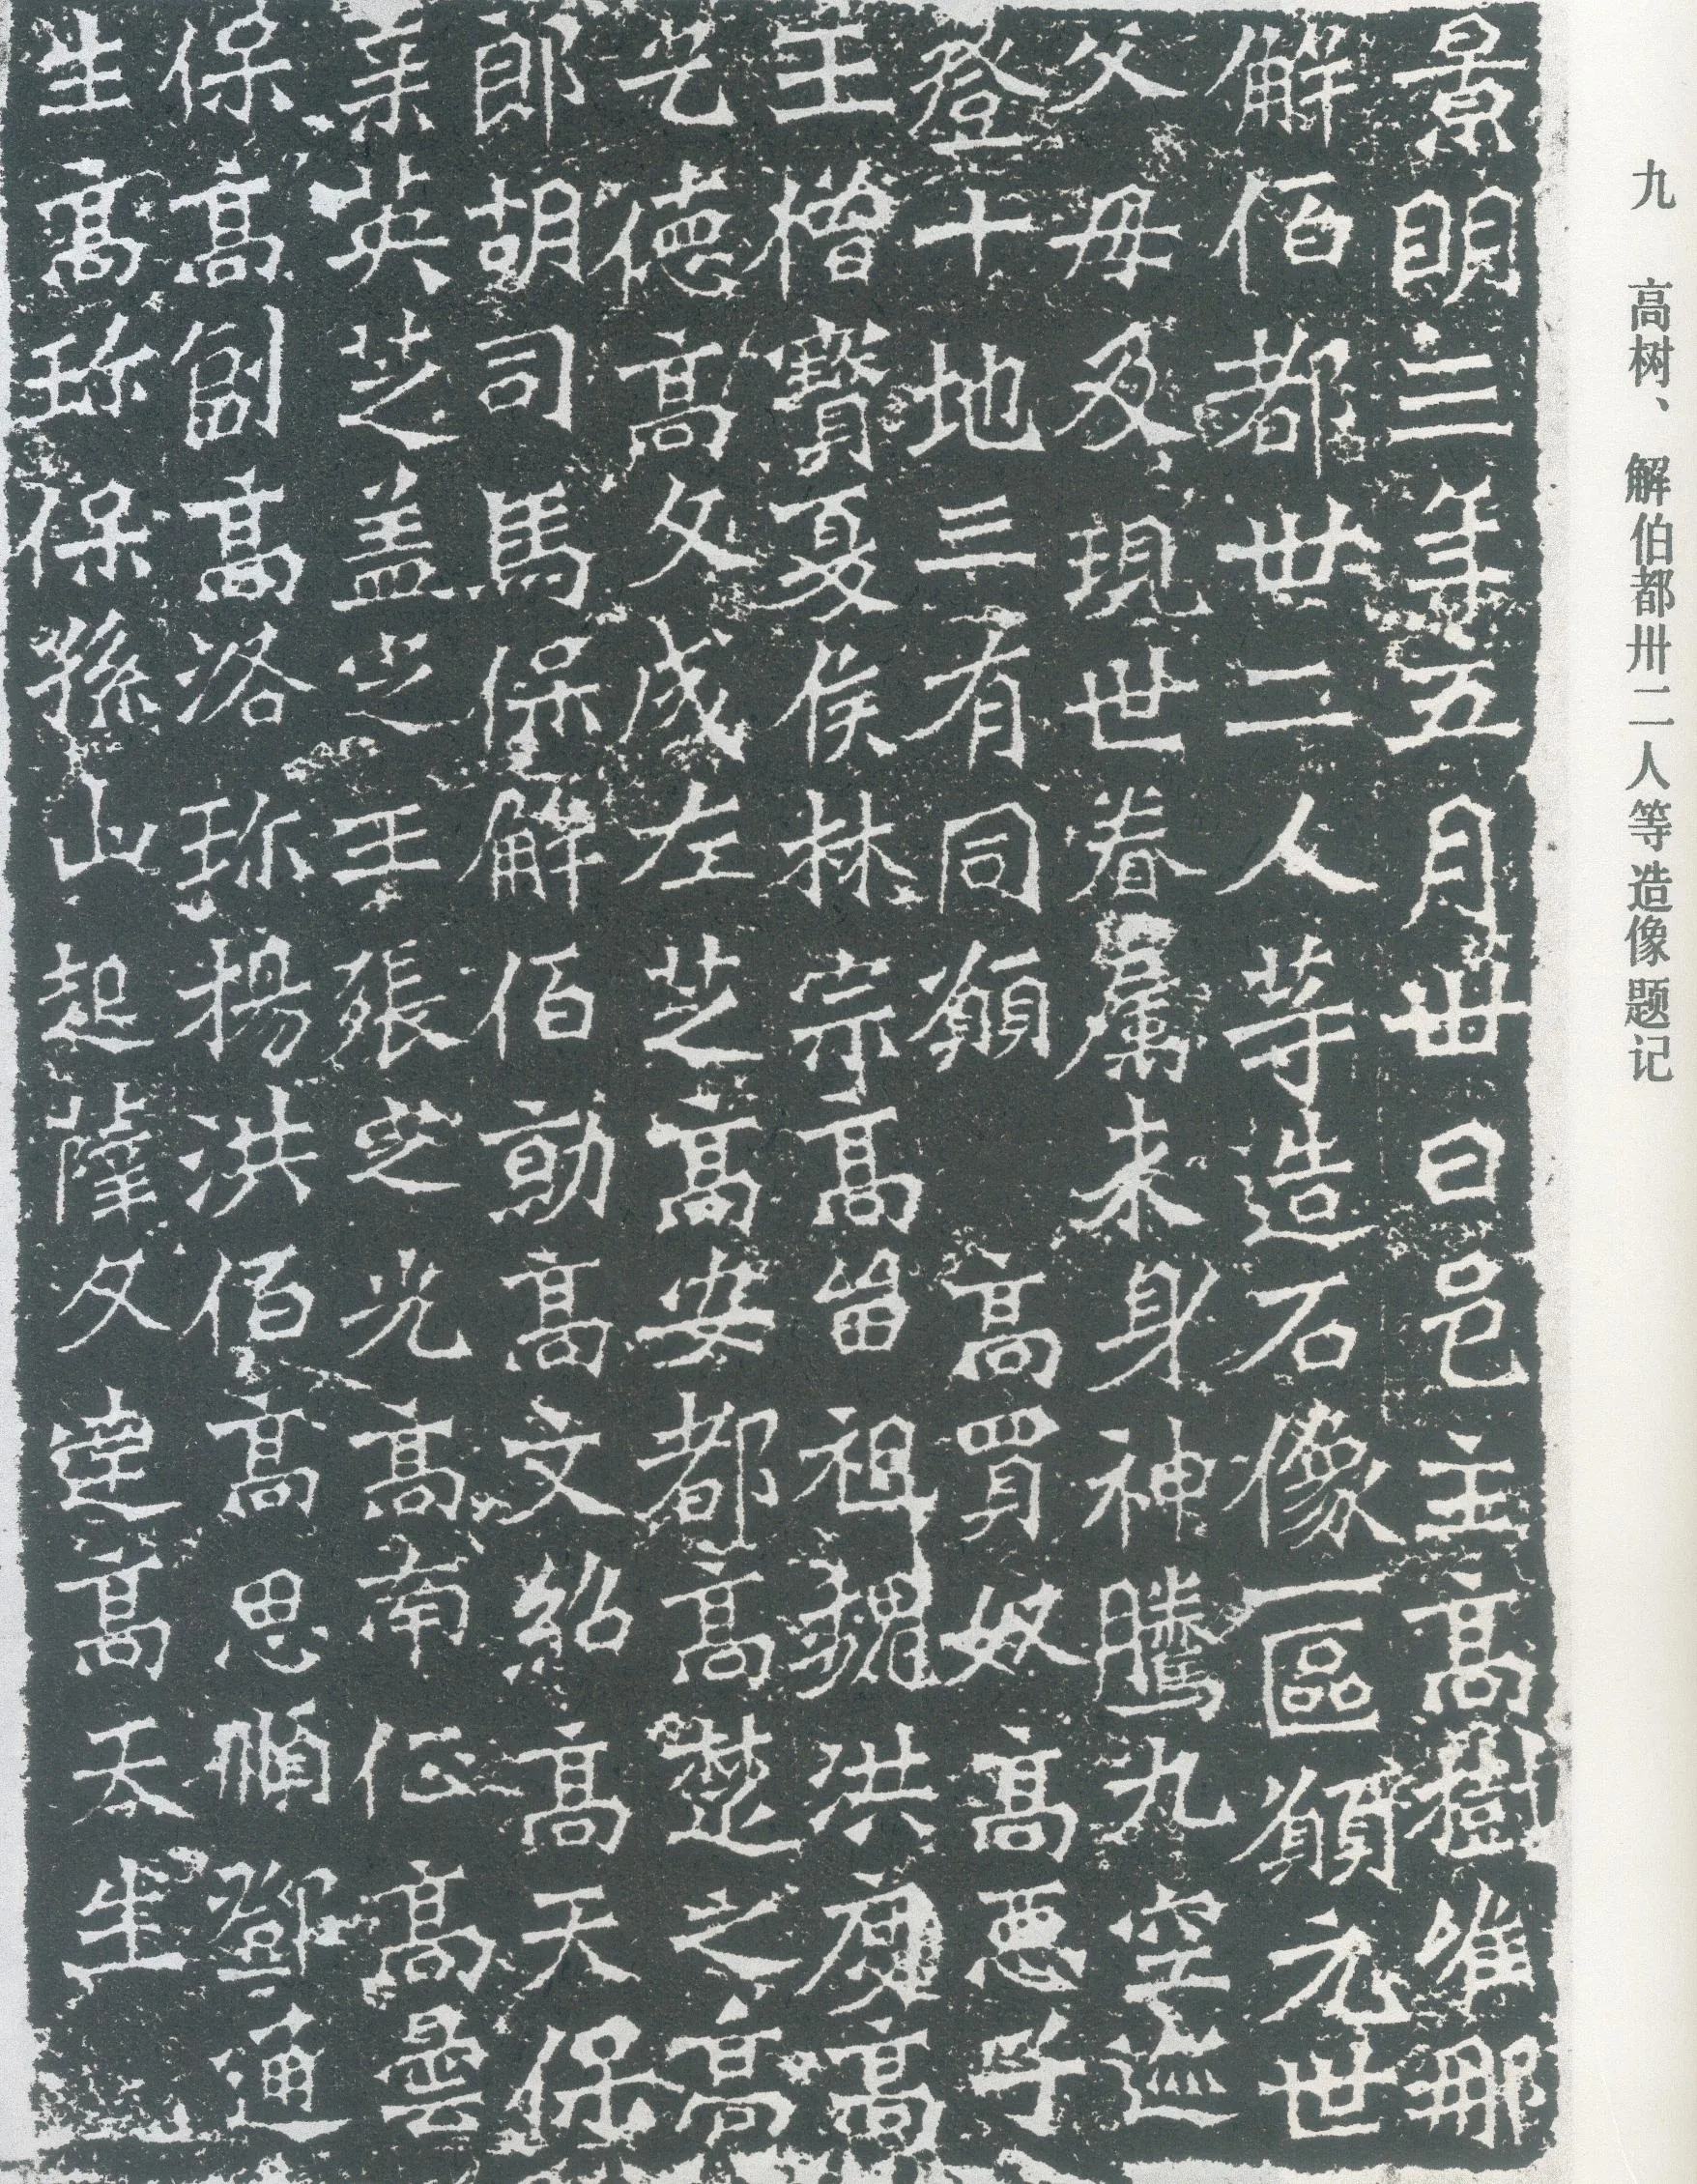 九 高树、解伯都卅二人等造像题记
景明三年五月卅日邑主高樹唯那
解佰都卅二人等造石像一區願元世
父母及現世眷屬来身神騰九空迊
登十地三有同願 高買奴高惡子
王僧寶夏侯林宗高留祖魏洪度高
乞德高文成左芝高安都高楚之高
郎胡司馬保解佰勍高文紹高天保
英芝盖之王張芝光高南征高曇
保高副高洛珎楊洪佰高思順鄧通
生高珎保孫山起薩文達高天生